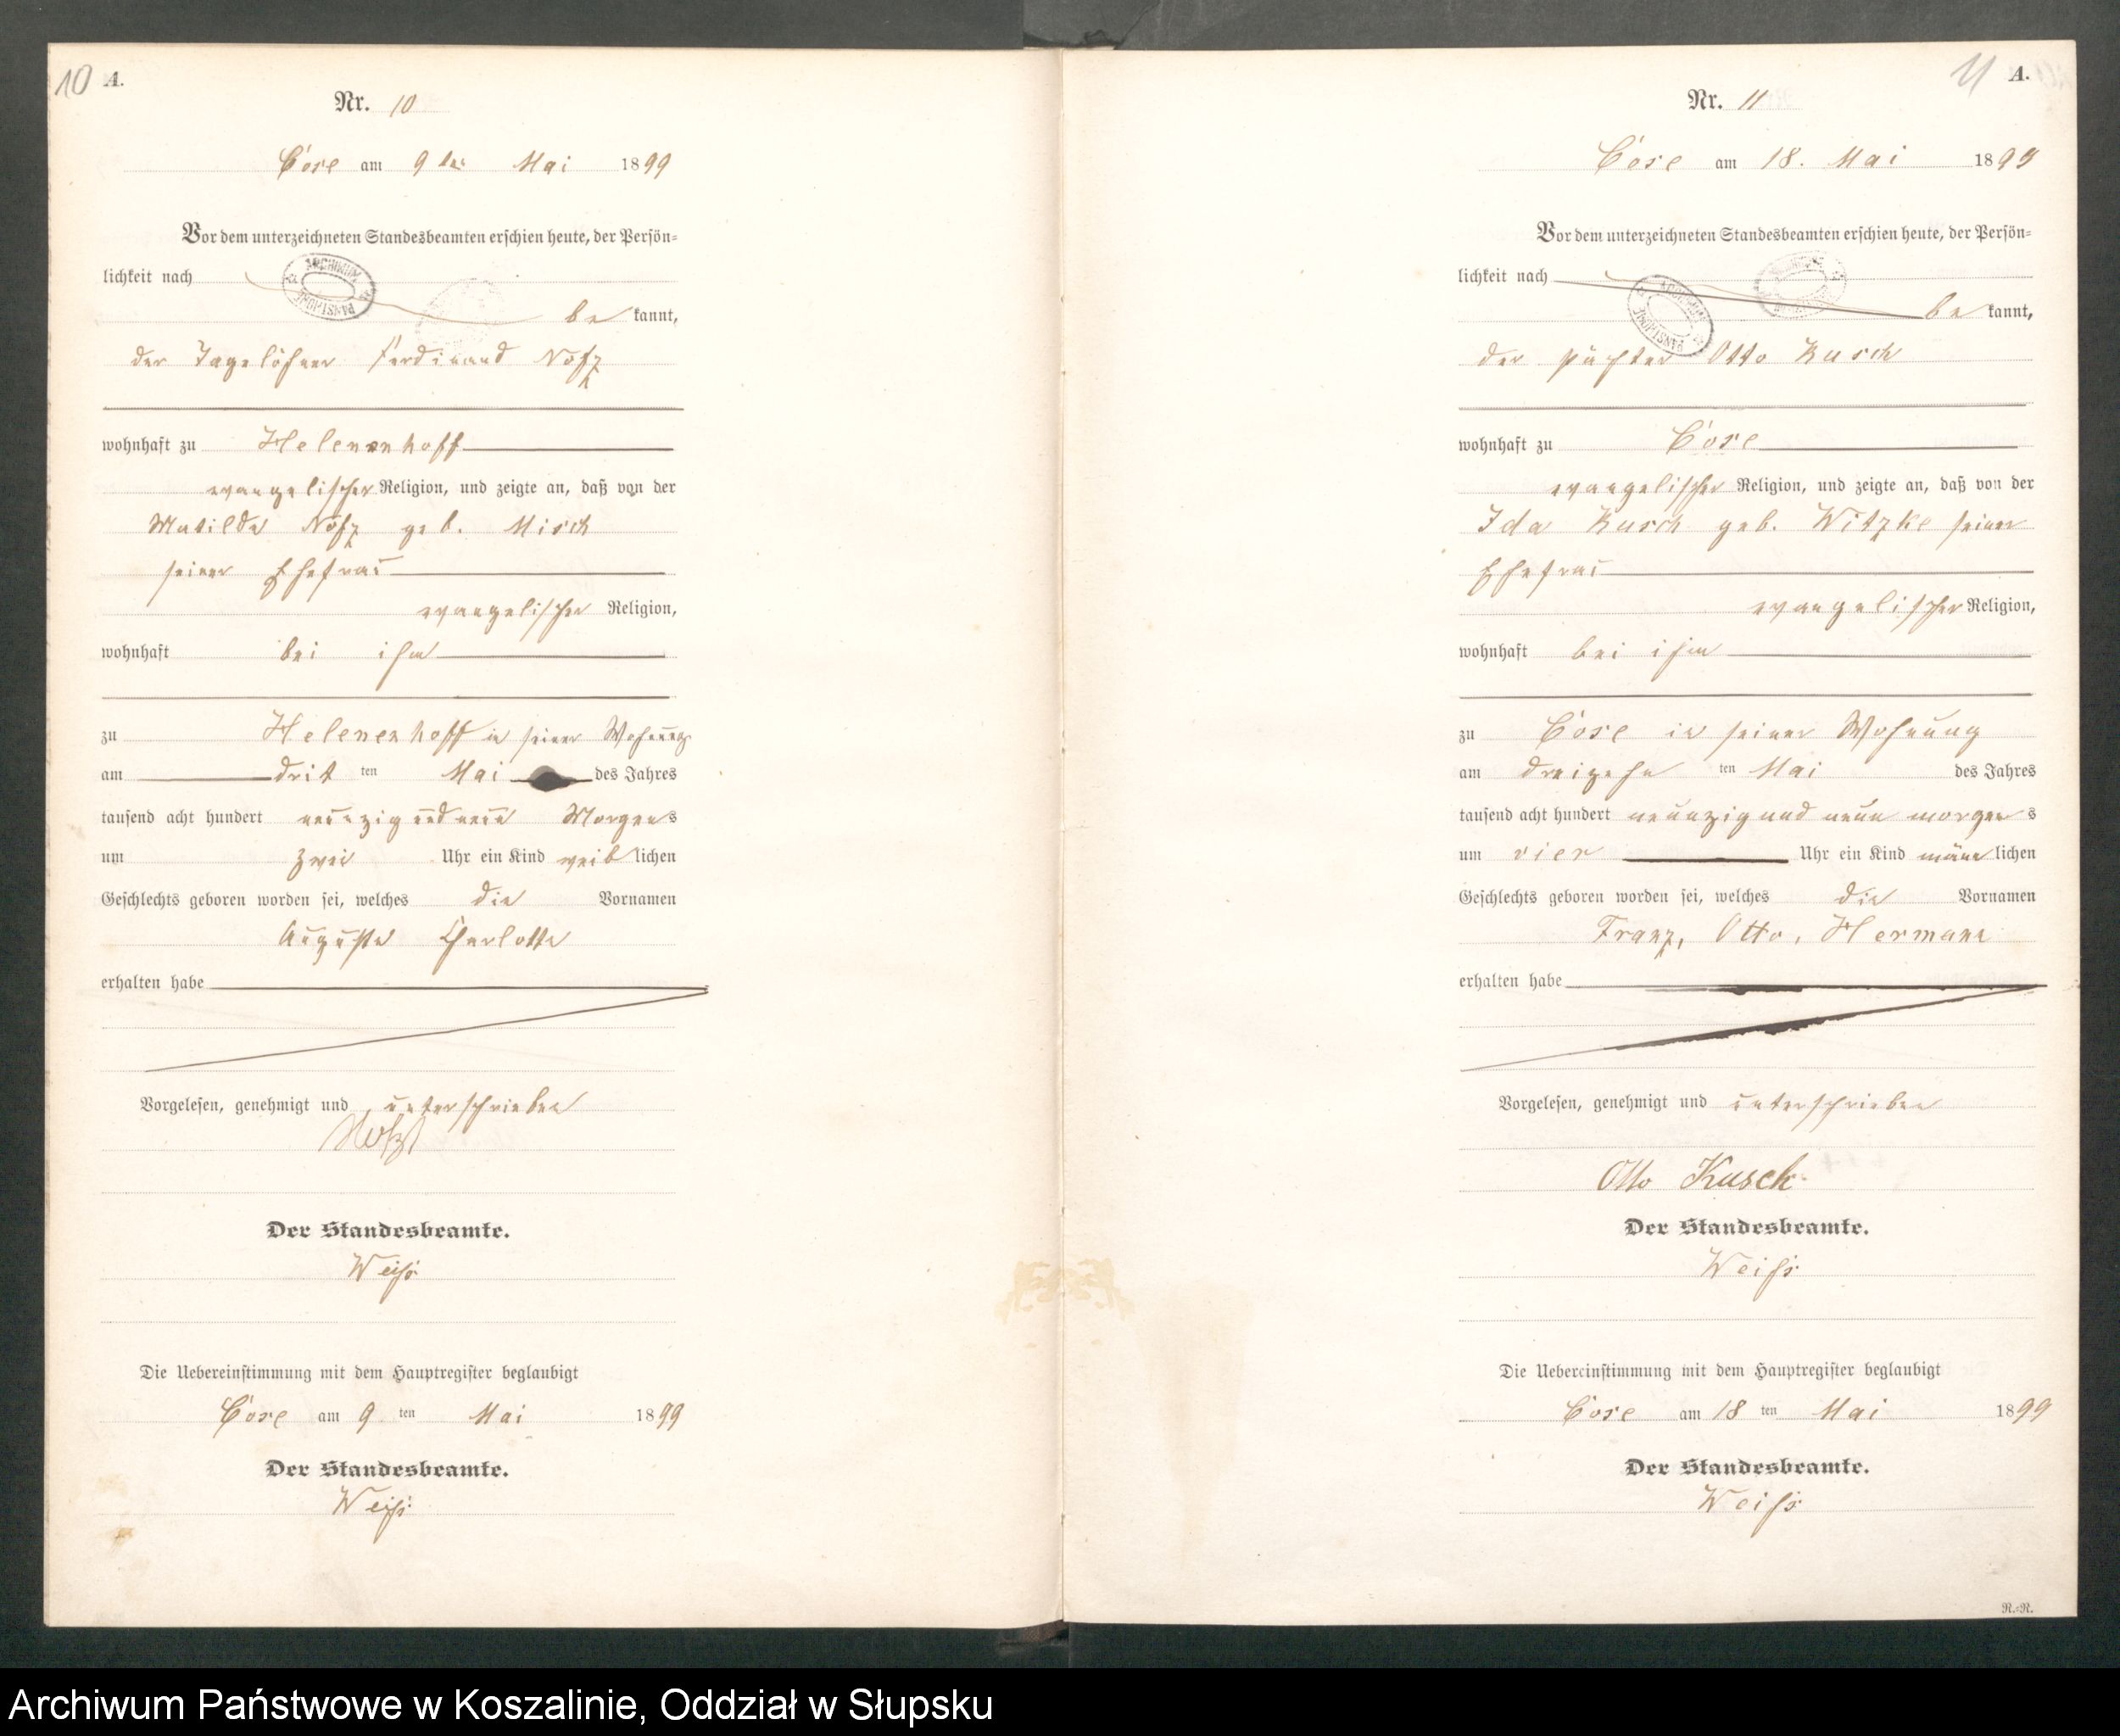 10 A.
Nr. 10
Cose am 9ten Mai 1899
Vor dem unterzeichneten Standesbeamten erschien heute, der Persön=
lichkeit nach
ARCHIWUM PAŃSTWOWE
be kannt,
der Tagelöhner Ferdinand
wohnhaft zu Helenenhoff
evangelischer Religion, und zeigte an, daß von der
Matilde geb. Misch
seiner Ehefrau
evangelischer Religion,
wohnhaft bei ihm
zu Helenenhoff in seiner Wohnung
am drit ten Mai des Jahres
tausend acht hundert neunzig und neun Morgens
um zwei Uhr ein Kind weiblichen
Geschlechts geboren worden sei, welches die Vornamen
Auguste Charlotte
erhalten habe
Vorgelesen, genehmigt und unterschrieben
Der Standesbeamte.
Weiß
Die Uebereinstimmung mit dem Hauptregister beglaubigt
Cose am 9 ten Mai 1899
Der Standesbeamte.
Weiß
11 A.
Nr. 11
Cose am 18. Mai 1899
Vor dem unterzeichneten Standesbeamten erschien heute, der Persön=
lichkeit nach
ARCHIWUM PAŃSTWOWE
be kannt,
der Pächter Otto Kusch
wohnhaft zu Cose
evangelischer Religion, und zeigte an, daß von der
Ida Kusch geb. Witzke seiner
Ehefrau
evangelischer Religion,
wohnhaft bei ihm
zu Cose in seiner Wohnung
am dreizehn ten Mai des Jahres
tausend acht hundert neunzig und neun morgens
um vier Uhr ein Kind männlichen
Geschlechts geboren worden sei, welches die Vornamen
Franz, Otto, Hermann
erhalten habe
Vorgelesen, genehmigt und unterschrieben
Otto Kusch
Der Standesbeamte.
Weiß
Die Uebereinstimmung mit dem Hauptregister beglaubigt
Cose am 18 ten Mai 1899
Der Standesbeamte.
Weiß
R.=R.
Archiwum Państwowe w Koszalinie, Oddział w Słupsku